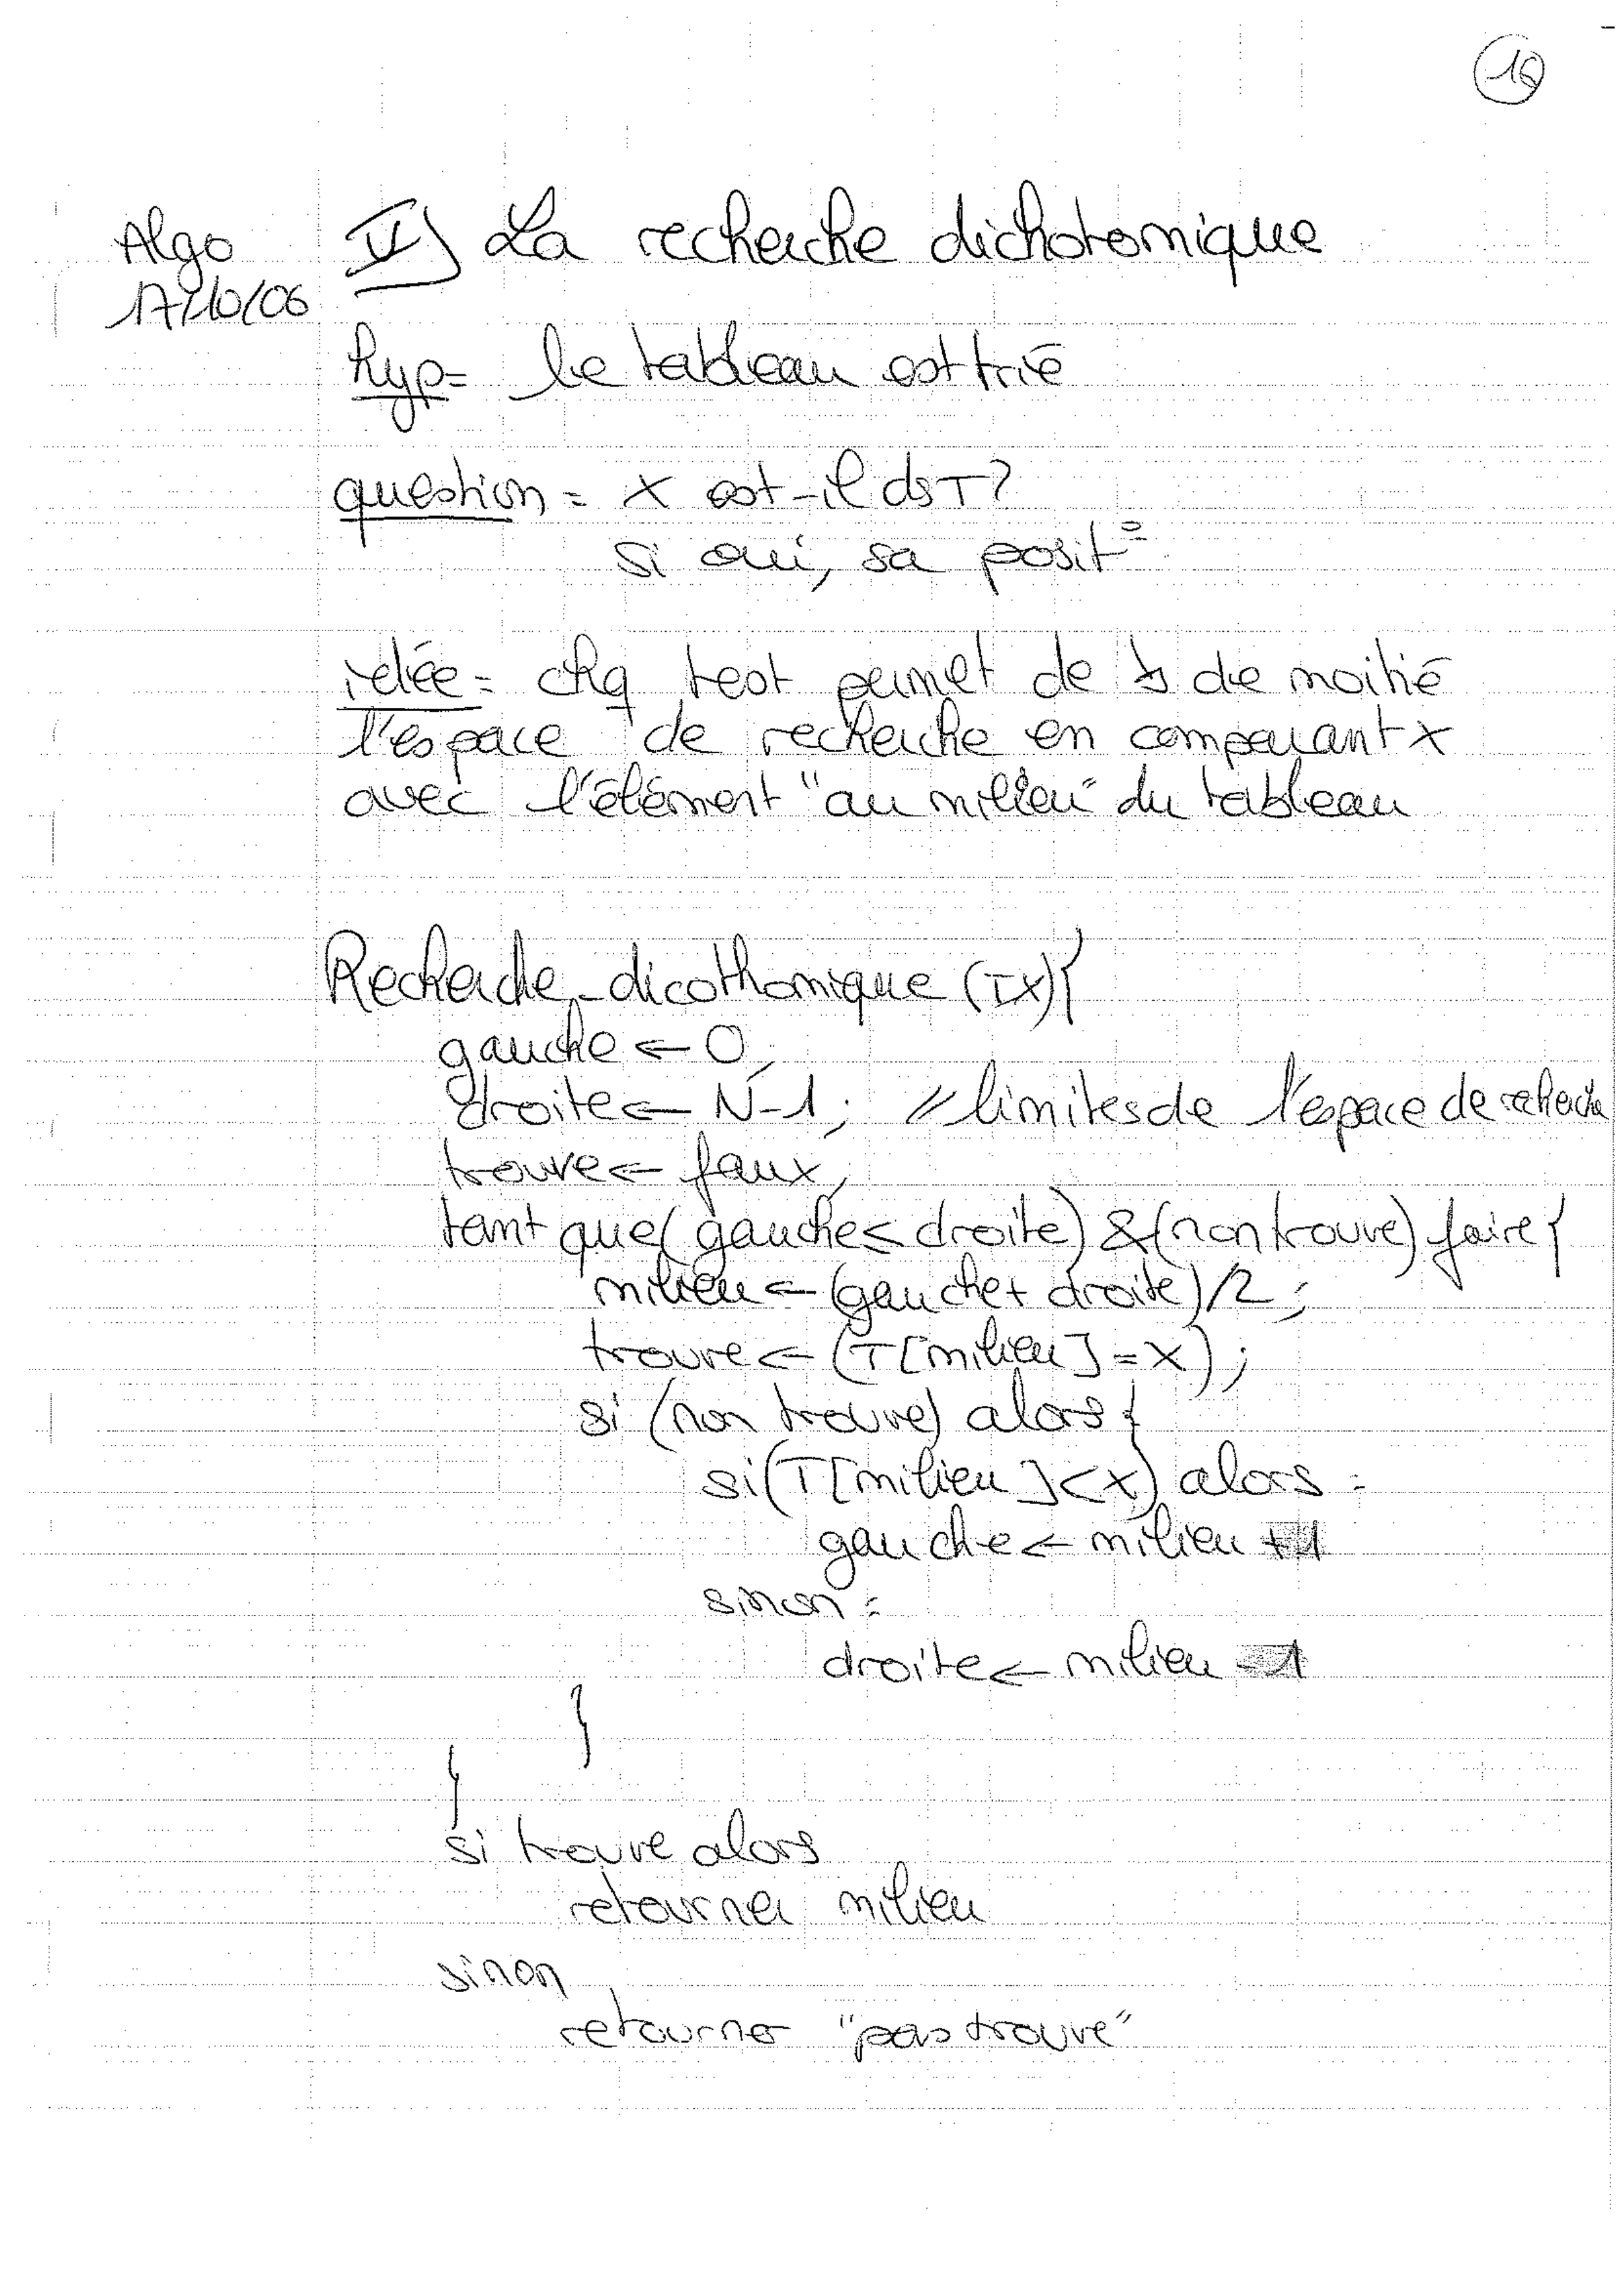 16
Algo
17/10/06
IV) La recherche dichotomique
hyp= le tableau est trié
question = X est-il ds T?
si oui, sa posit°
idée = chq test permet de ↘ de moitié
l'espace de recherche en comparant X
avec l'élément "au milieu" du tableau
Recherche_dicothomique (T,X){
gauche ← 0;
droite ← N-1; // limites de l'espace de recherche
trouve ← faux;
tant que (gauche ≤ droite) & (non trouve) faire {
milieu ← (gauche + droite)/2;
trouve ← (T[milieu] = X);
si (non trouve) alors {
si (T[milieu] < X) alors =
gauche ← milieu +1
sinon =
droite ← milieu -1
}
}
si trouve alors
retourner milieu
sinon
retourner "pas trouve"